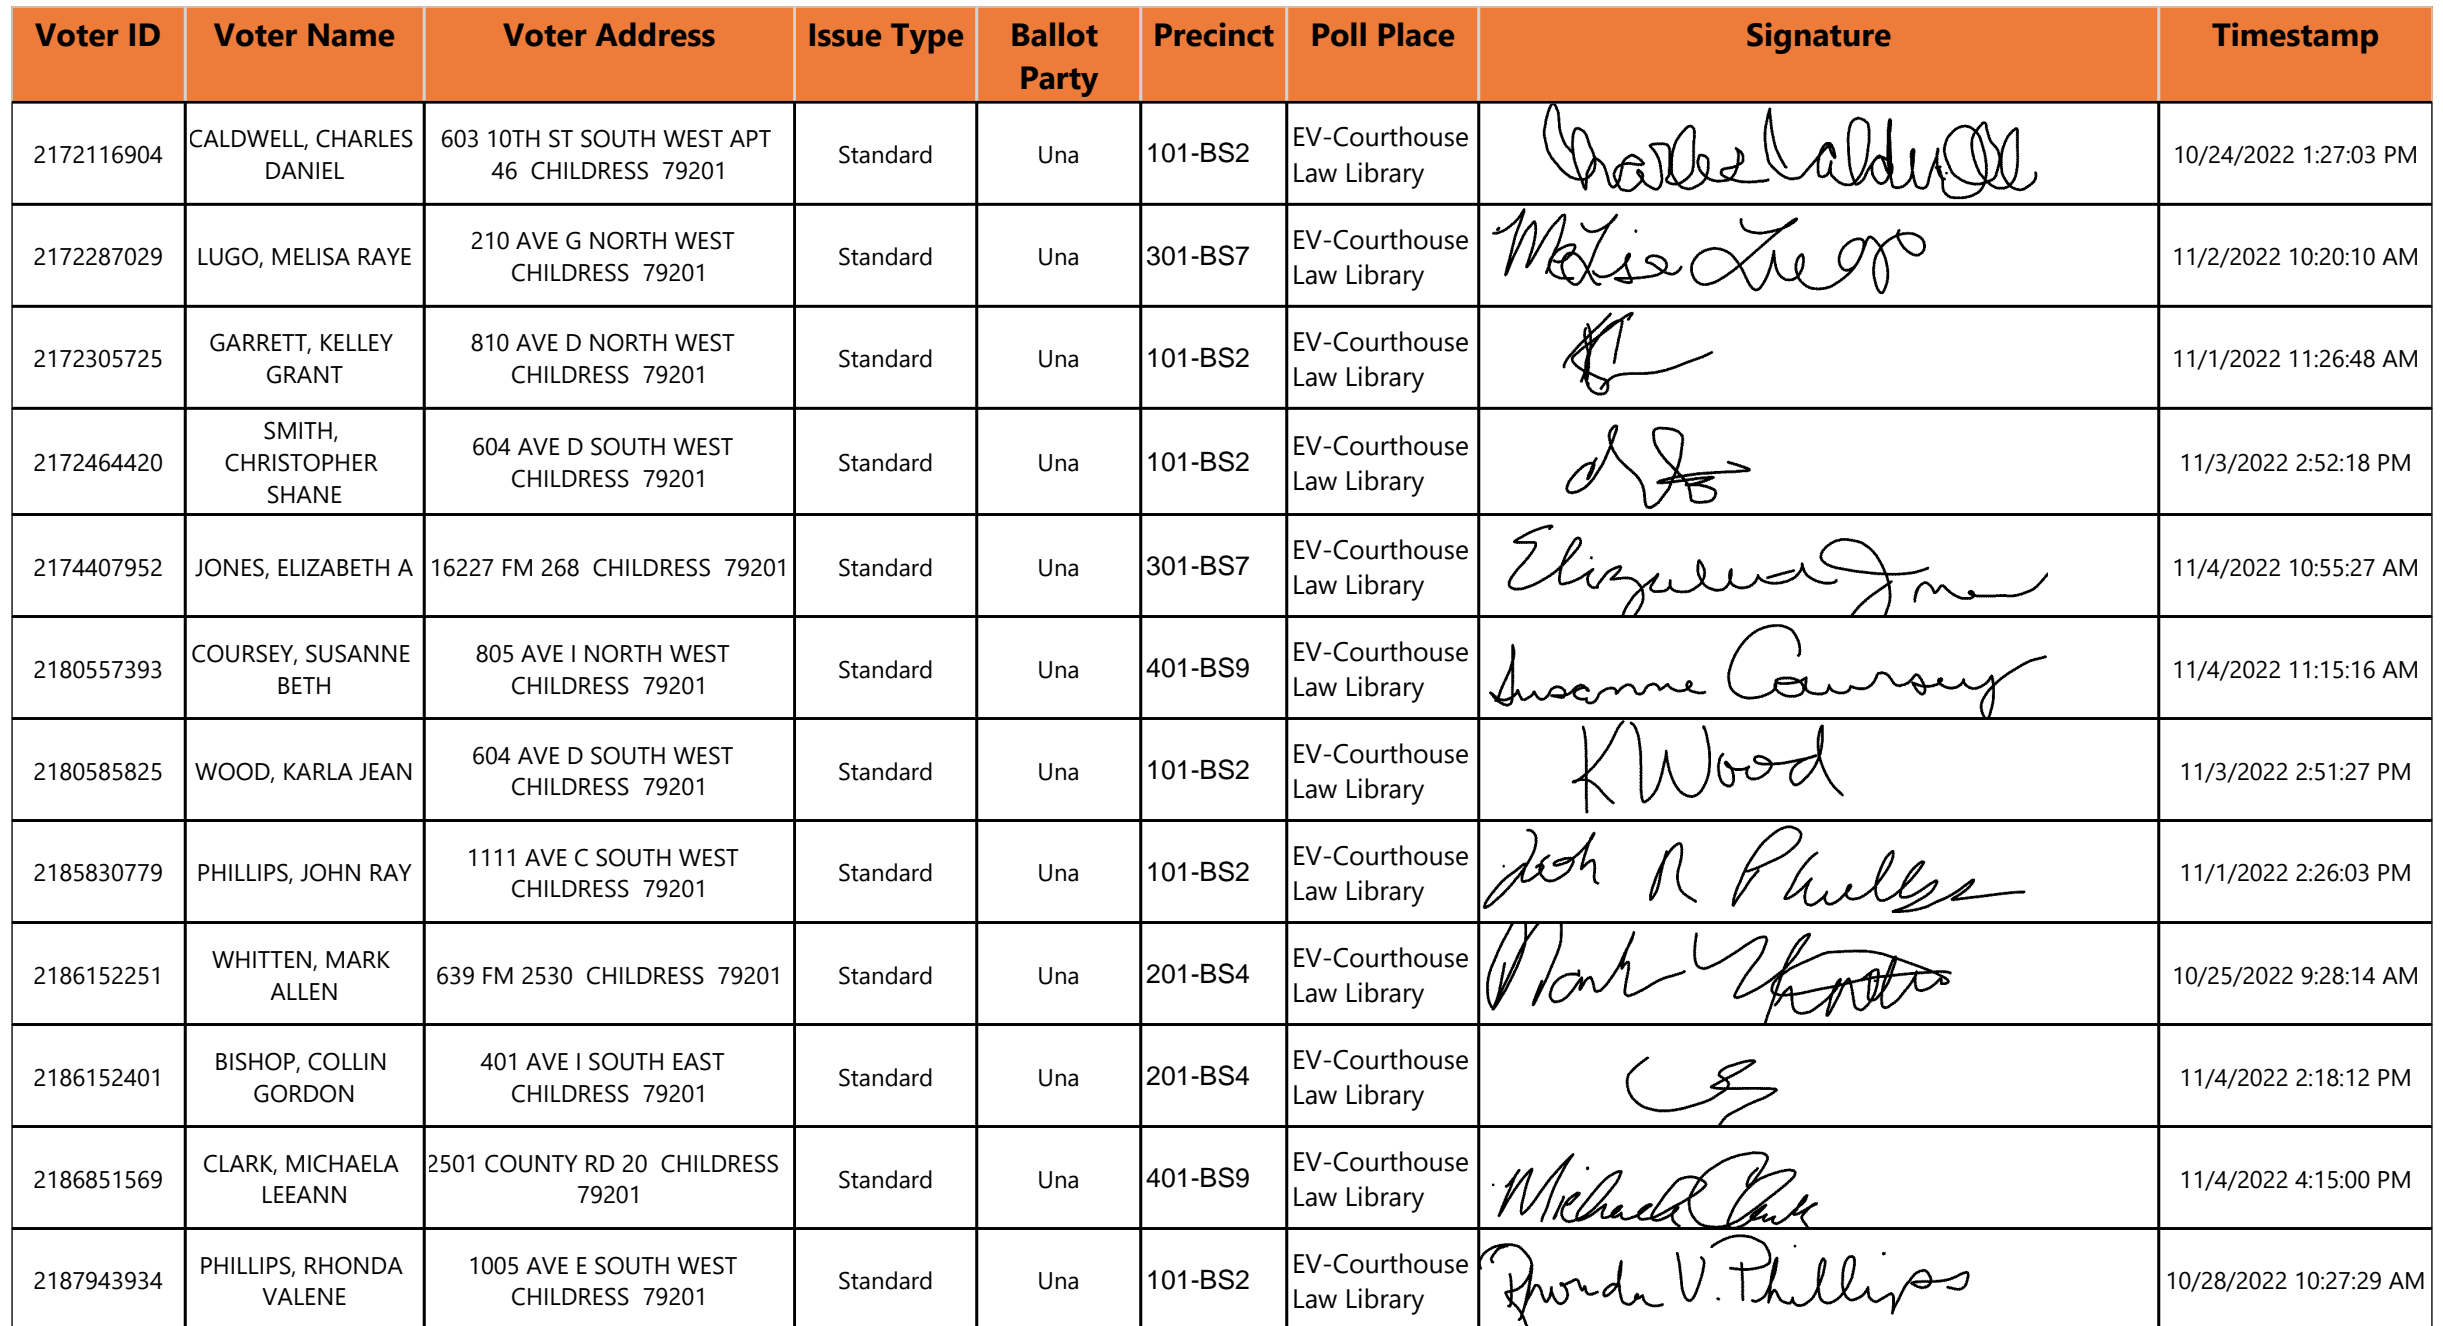 Voter ID Voter Name Voter Address Issue Type Ballot Party Precinct Poll Place Signature Timestamp
2172116904 CALDWELL, CHARLES DANIEL 603 10TH ST SOUTH WEST APT 46 CHILDRESS 79201 Standard Una 101-BS2 EV-Courthouse Law Library Charles Caldwell 10/24/2022 1:27:03 PM
2172287029 LUGO, MELISA RAYE 210 AVE G NORTH WEST CHILDRESS 79201 Standard Una 301-BS7 EV-Courthouse Law Library Melisa Lugo 11/2/2022 10:20:10 AM
2172305725 GARRETT, KELLEY GRANT 810 AVE D NORTH WEST CHILDRESS 79201 Standard Una 101-BS2 EV-Courthouse Law Library 11/1/2022 11:26:48 AM
2172464420 SMITH, CHRISTOPHER SHANE 604 AVE D SOUTH WEST CHILDRESS 79201 Standard Una 101-BS2 EV-Courthouse Law Library 11/3/2022 2:52:18 PM
2174407952 JONES, ELIZABETH A 16227 FM 268 CHILDRESS 79201 Standard Una 301-BS7 EV-Courthouse Law Library Elizabeth Jones 11/4/2022 10:55:27 AM
2180557393 COURSEY, SUSANNE BETH 805 AVE I NORTH WEST CHILDRESS 79201 Standard Una 401-BS9 EV-Courthouse Law Library Susanne Coursey 11/4/2022 11:15:16 AM
2180585825 WOOD, KARLA JEAN 604 AVE D SOUTH WEST CHILDRESS 79201 Standard Una 101-BS2 EV-Courthouse Law Library K Wood 11/3/2022 2:51:27 PM
2185830779 PHILLIPS, JOHN RAY 1111 AVE C SOUTH WEST CHILDRESS 79201 Standard Una 101-BS2 EV-Courthouse Law Library John R Phillips 11/1/2022 2:26:03 PM
2186152251 WHITTEN, MARK ALLEN 639 FM 2530 CHILDRESS 79201 Standard Una 201-BS4 EV-Courthouse Law Library Mark Whitten 10/25/2022 9:28:14 AM
2186152401 BISHOP, COLLIN GORDON 401 AVE I SOUTH EAST CHILDRESS 79201 Standard Una 201-BS4 EV-Courthouse Law Library 11/4/2022 2:18:12 PM
2186851569 CLARK, MICHAELA LEEANN 2501 COUNTY RD 20 CHILDRESS 79201 Standard Una 401-BS9 EV-Courthouse Law Library Michaela Clark 11/4/2022 4:15:00 PM
2187943934 PHILLIPS, RHONDA VALENE 1005 AVE E SOUTH WEST CHILDRESS 79201 Standard Una 101-BS2 EV-Courthouse Law Library Rhonda V. Phillips 10/28/2022 10:27:29 AM